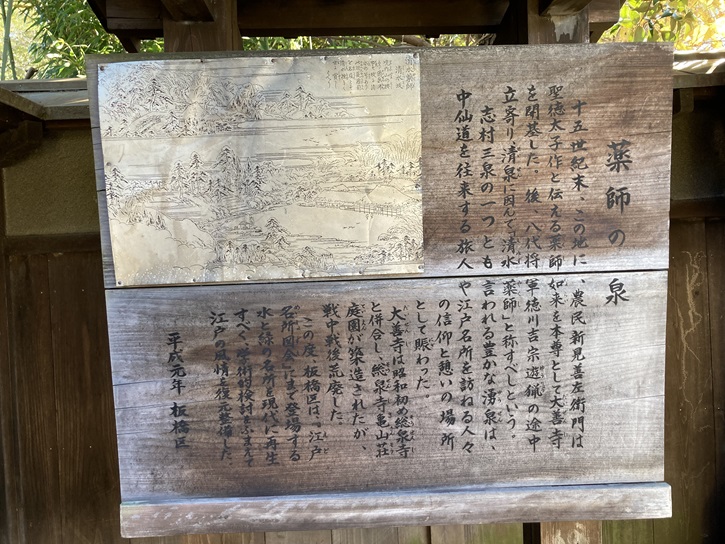 薬師の泉
十五世紀末、この地に、農民新見善左衛門は
聖徳太子作と伝える薬師如来を本尊として大善寺
を開基した。後、八代将軍徳川吉宗遊猟の途中
立寄り清泉に因んで「清水薬師」と称すべしという。
志村三泉の一つとも言われる豊かな湧泉は、
中仙道を往来する旅人や江戸名所を訪ねる人々
の信仰と憩いの場所
として賑わった。
大善寺は昭和初め総泉寺
と併合し、総泉寺亀山荘
庭園が築造されたが、
戦中戦後荒廃した。
この度、板橋区は、「江戸
名所図会」にまで登場する
水と緑の名所を現代に再生
すべく、学術的検討をふまえて
江戸の風情を復元整備した。
平成元年 板橋区
清水坂